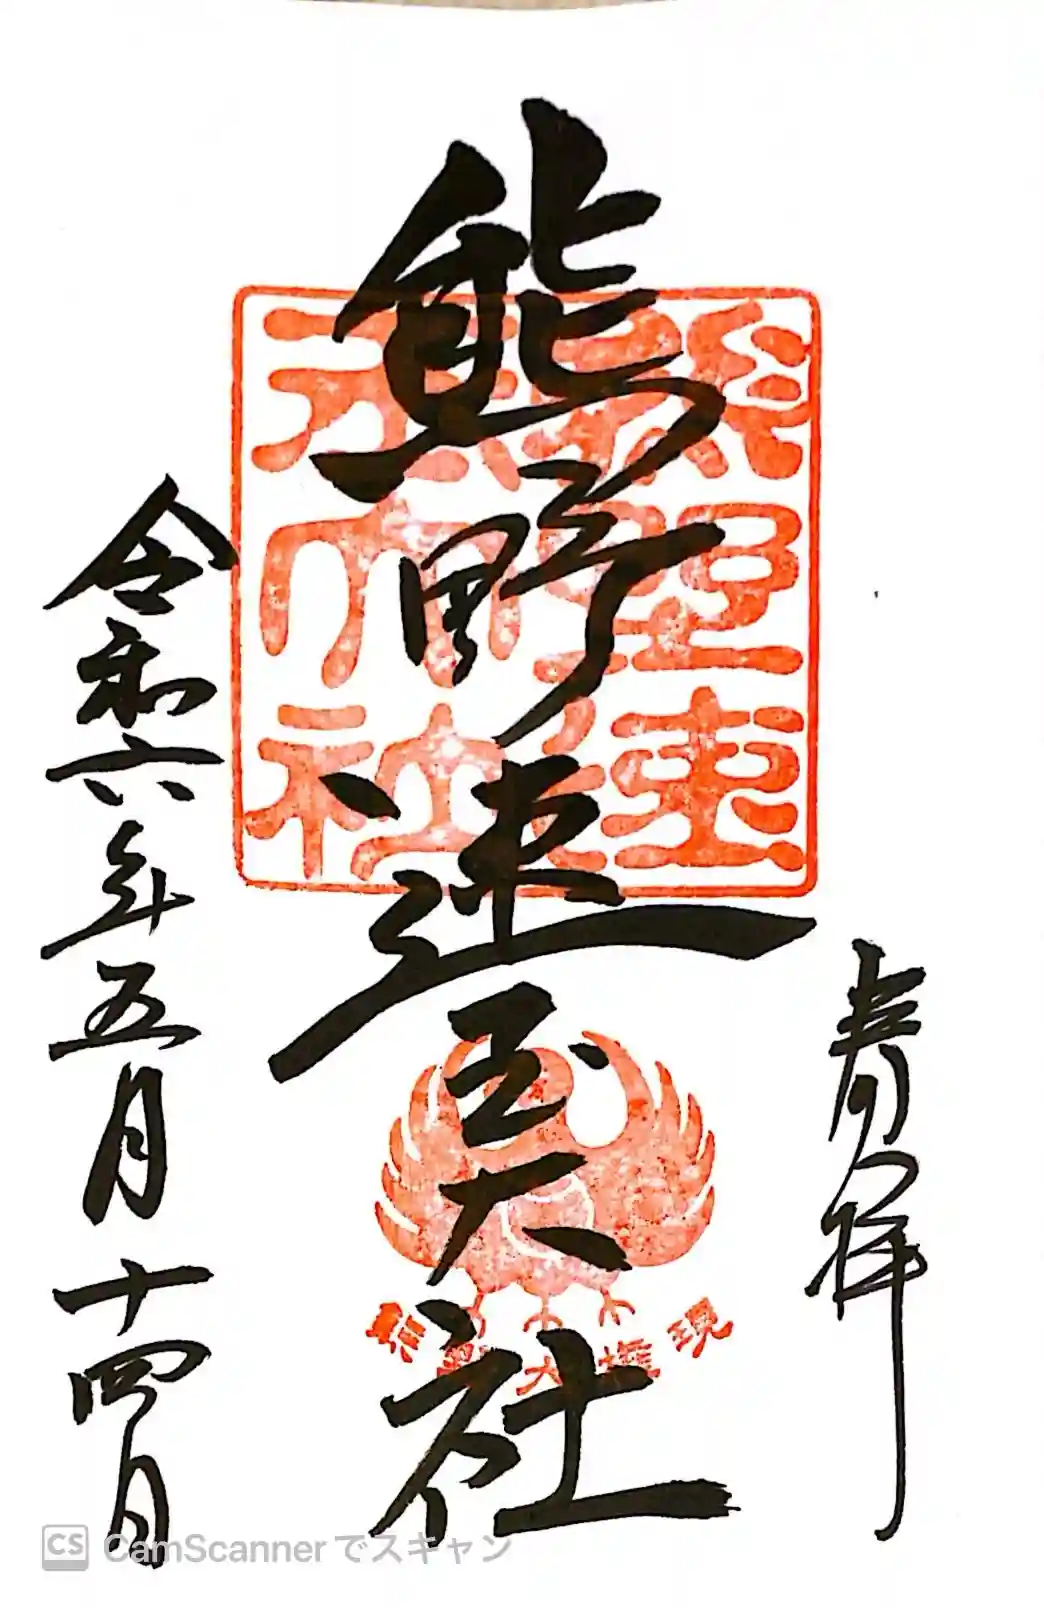 奉拝
熊野速玉大社
令和六年五月十四日
熊野速玉大社
熊野大権現
CS CamScannerでスキャン